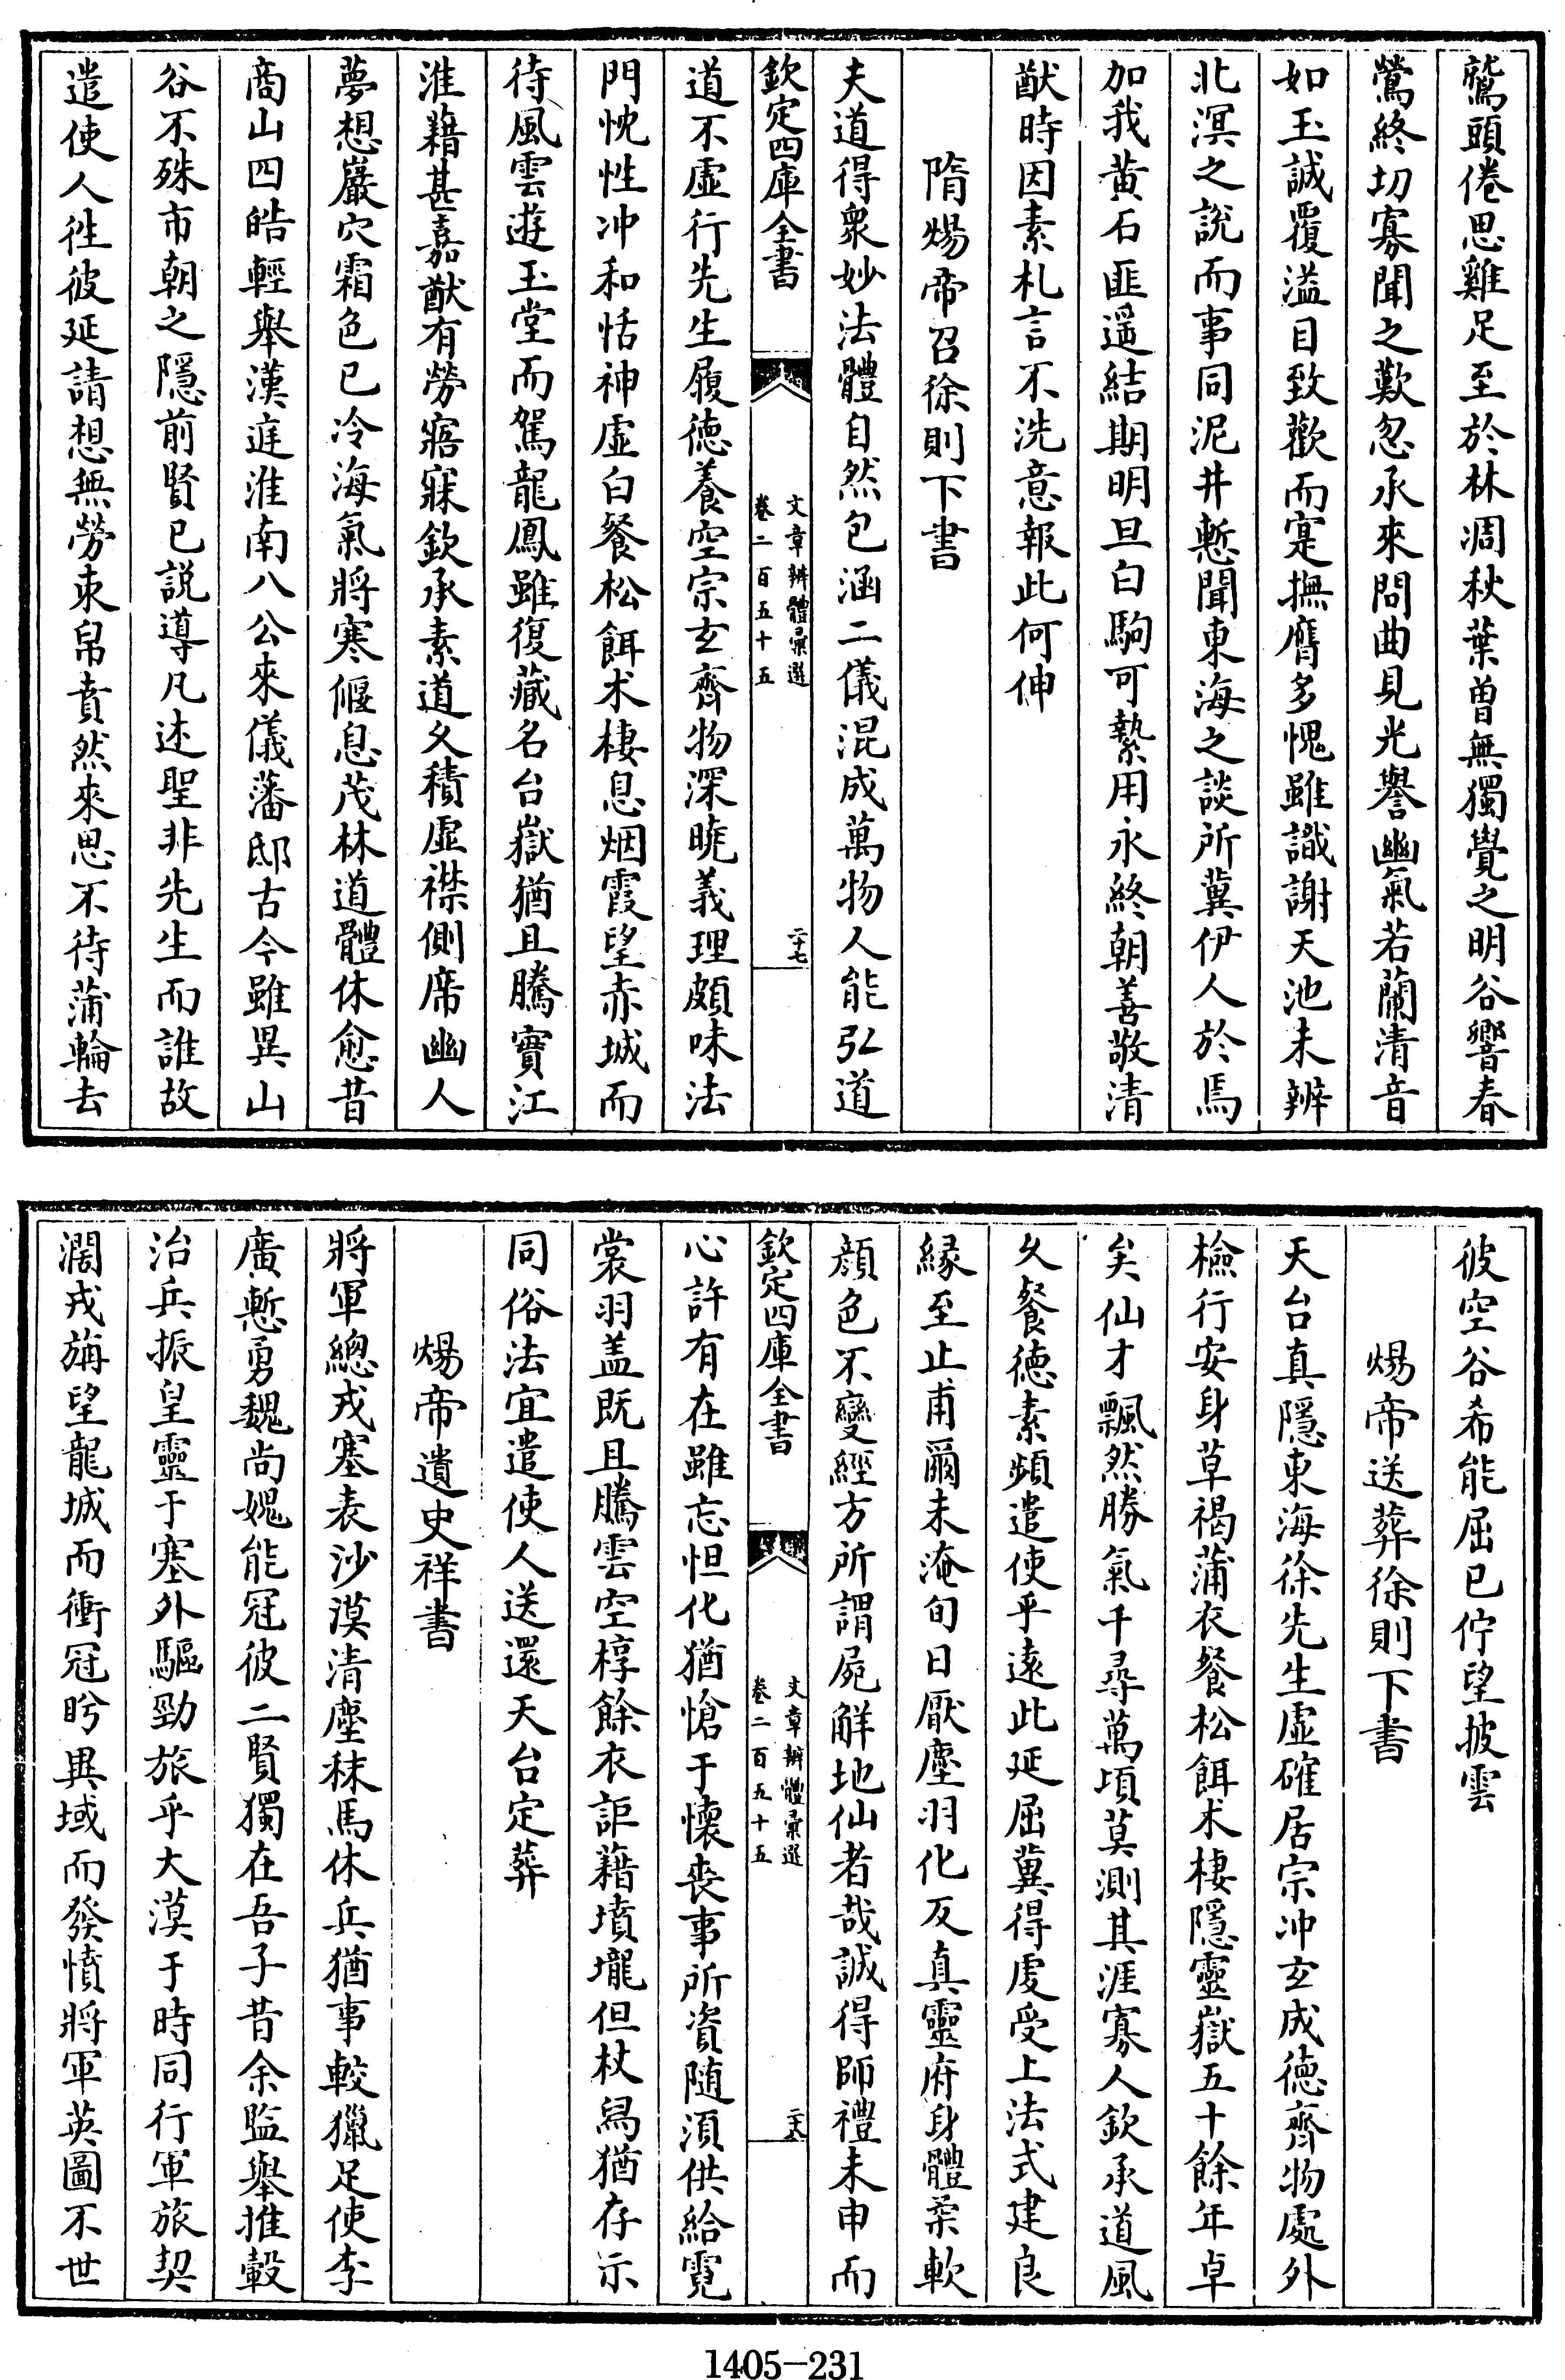 鷲頭倦思雞足至於林凋秋葉曽無獨覺之明谷響春
鶯終切寡聞之歎忽承來問曲見光譽幽氣若蘭清音
如玉誠覆溢目致歡而寔撫膺多愧雖識謝天池未辨
北溟之說而事同泥井慙聞東海之談所冀伊人於馬
加我黄石匪遥結期明旦白駒可縶用永終朝善敬清
猷時因素札言不洗意報此何伸
隋煬帝召徐則下書
夫道得衆妙法體自然包涵二儀混成萬物人能弘道
欽定四庫全書
文章辨體彚選
卷二百五十五
二十七
道不虚行先生履德養空宗玄齊物深曉義理頗味法
門怳性冲和恬神虚白餐松餌术棲息烟霞望赤城而
待風雲遊玉堂而駕龍鳳雖復藏名台嶽猶且騰實江
淮藉甚嘉猷有勞寤寐欽承素道久積虚襟側席幽人
夢想巖穴霜色已冷海氣將寒偃息茂林道體休愈昔
商山四皓輕舉漢庭淮南八公來儀藩邸古今雖異山
谷不殊市朝之隱前賢已説導凡述聖非先生而誰故
遣使人徃彼延請想無勞束帛賁然來思不待蒲輪去
彼空谷希能屈已佇望披雲
煬帝送葬徐則下書
天台真隱東海徐先生虚確居宗冲玄成德齊物處外
檢行安身草褐蒲衣餐松餌术棲隱靈嶽五十餘年卓
矣仙才飄然勝氣千尋萬頃莫測其涯寡人欽承道風
久餐德素頻遣使乎遠此延屈冀得虔受上法式建良
緣至止甫爾未淹旬日厭塵羽化反真靈府身體柔軟
顔色不變經方所謂屍解地仙者哉誠得師禮未申而
欽定四庫全書
文章辨體彚選
卷二百五十五
二十八
心許有在雖忘怛化猶愴于懷丧事所資随湏供給霓
裳羽盖既且騰雲空椁餘衣詎藉墳壠但杖舄猶存示
同俗法宜遣使人送還天台定葬
煬帝遺史祥書
將軍總戎塞表沙漠清塵秣馬休兵猶事較獵足使李
廣慙勇魏尚媿能冠彼二賢獨在吾子昔余監舉推轂
治兵振皇靈于塞外驅勁旅乎大漠于時同行軍旅契
濶戎旃望龍城而衝冠眄異域而發憤將軍英圖不世
1405-231